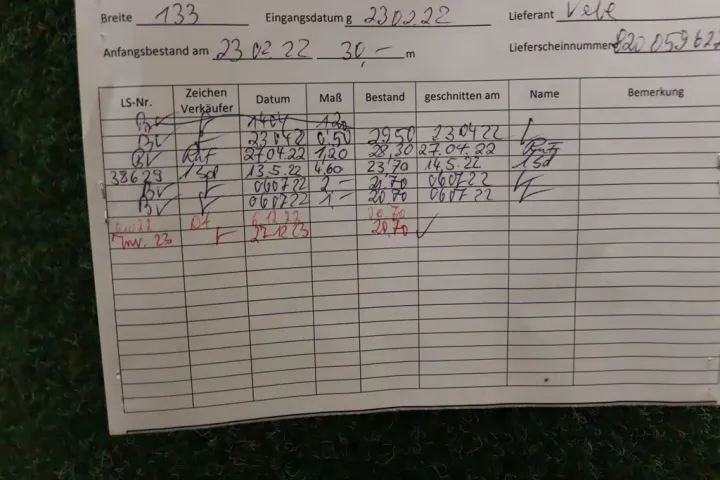 Breite 133 Eingangsdatum g 23.02.22 Lieferant
Anfangsbestand am 23 02 22 30,- m Lieferscheinnummer 820 059 627
LS-Nr. Zeichen Verkäufer Datum Maß Bestand geschnitten am Name Bemerkung
BV 1404 120
BV 230422 0.50 29.50 230422
BV 27.04.22 1,20 28,30 27.04.22
38629 13.5.22 4,60 23,70 14.5.22
BV 060722 2 - 060722
BV 060722 1.- 20.70 060722
6.12.22 20.70
Inv. 23 27.12.23 20,70 ✓